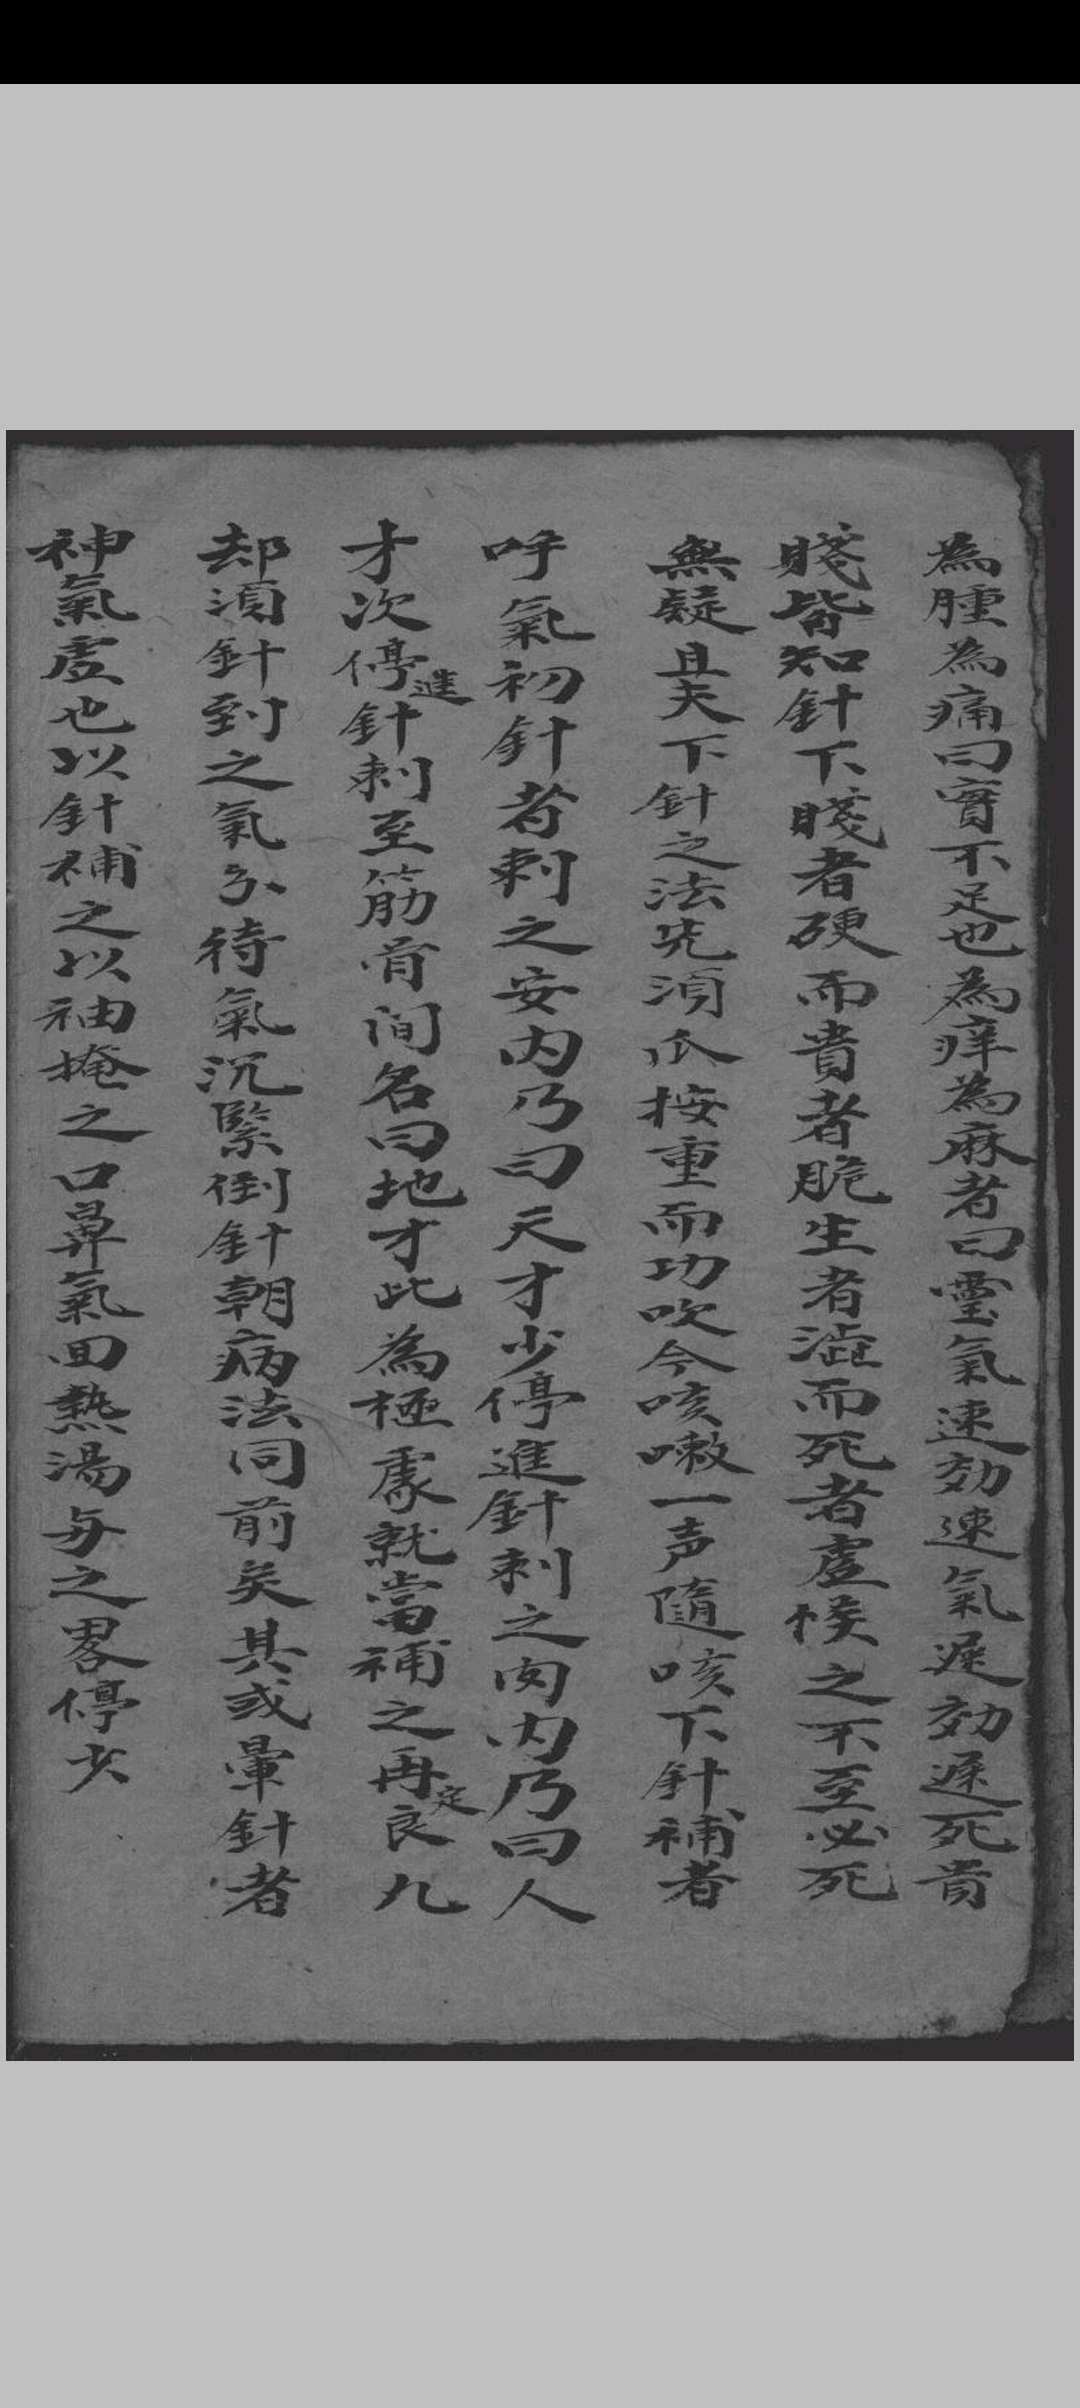 為腫為痛曰實不足也為痒為麻者曰虛氣速効速氣遲効遲死貴
賤皆知針下賤者硬而貴者脆生者澁而死者虛候之不至必死
無疑且夫下針之法先須爪按重而功吹令咳嗽一声隨咳下針補者
呼氣初針者刺之安内乃曰天才少停進針刺之肉内乃曰人
才次停進針刺至筋骨间名曰地才此為極處就當補之再定良九
却須針到之氣分待氣沉緊倒針朝病法同前矣其或暈針者
神氣虛也以針補之以袖掩之口鼻氣回熱湯与之畧停少